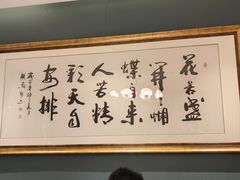 花若盛
開蝴
蝶自来
人若精
彩天自
安排